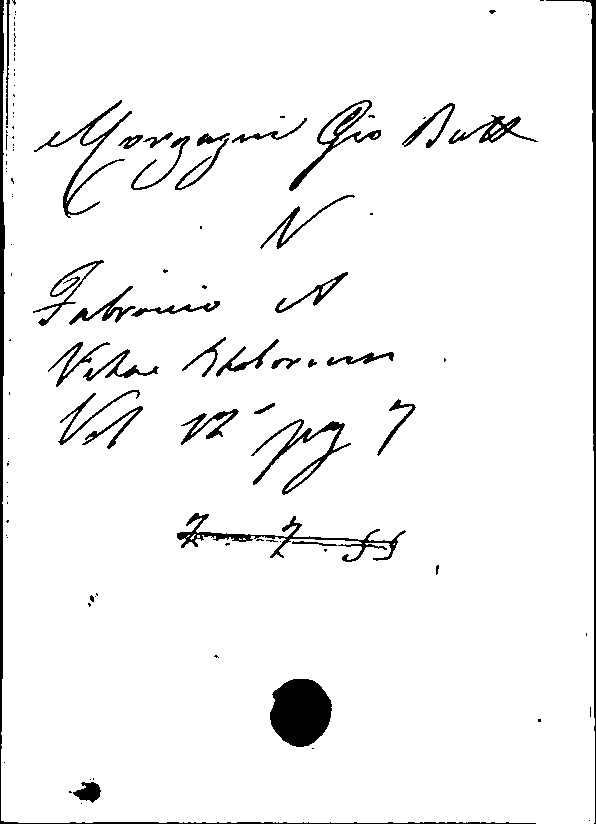 Morgagni Gio Batt
N
Fabronio A
Vitae Italorum
Vol 12 pg 7